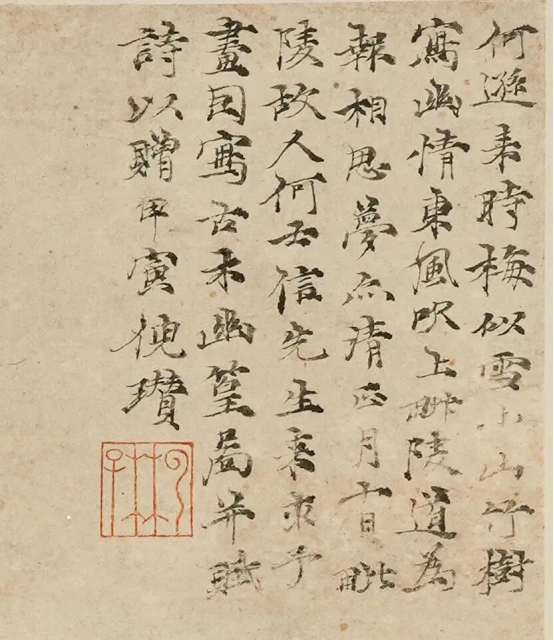 何遜来時梅似雪小山竹樹
寫幽情東風吹上毗陵道為
報相思夢亦清正月十日毗
陵故人何士信先生来求予
畫因寫古木幽篁啚并賦
詩以贈甲寅倪瓚
云林子